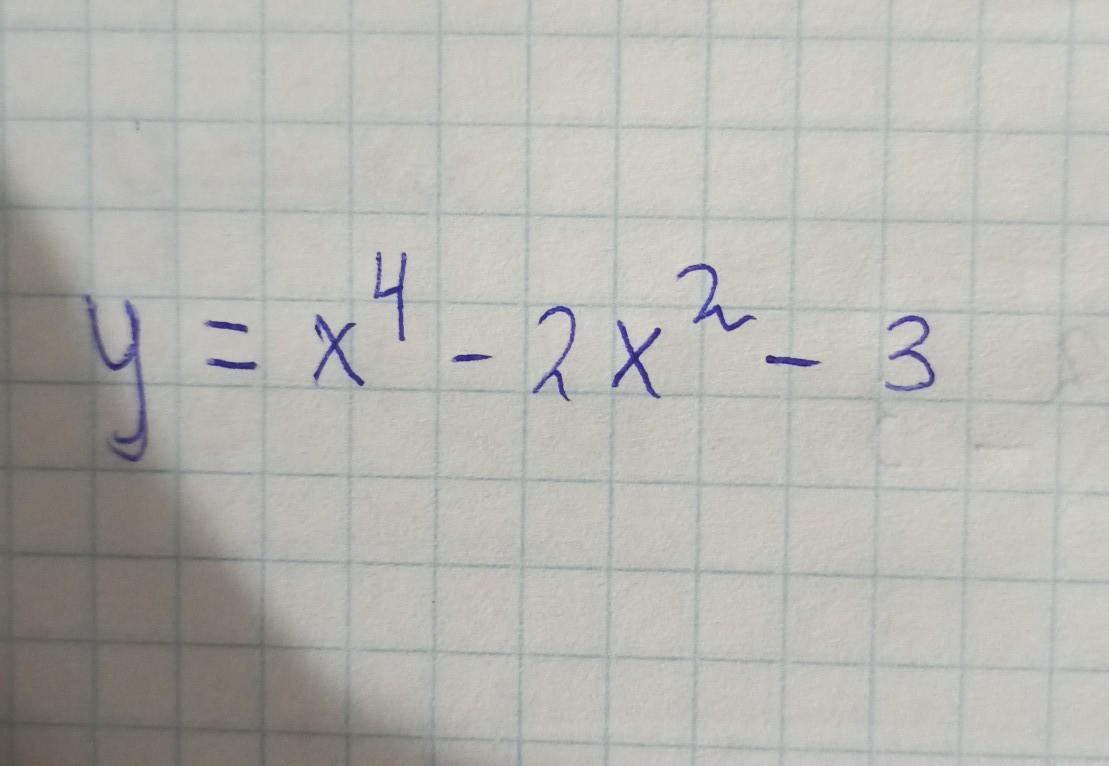 y = x⁴ - 2x² - 3